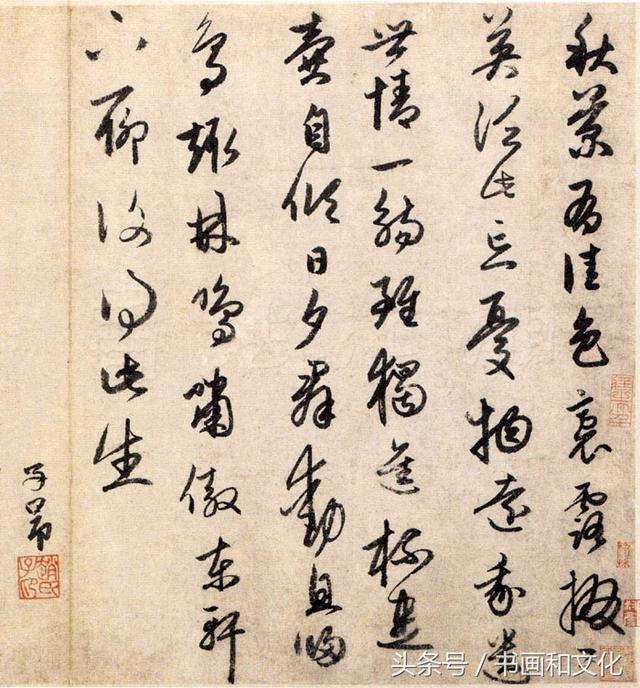 秋菊有佳色裛露掇其
英汎此忘憂物遠我遺
世情一觴雖獨進杯盡
壺自傾日夕群動息歸
鳥趨林鳴嘯傲東軒
下聊復得此生
子昂
趙氏子昂
头条号 / 书画和文化